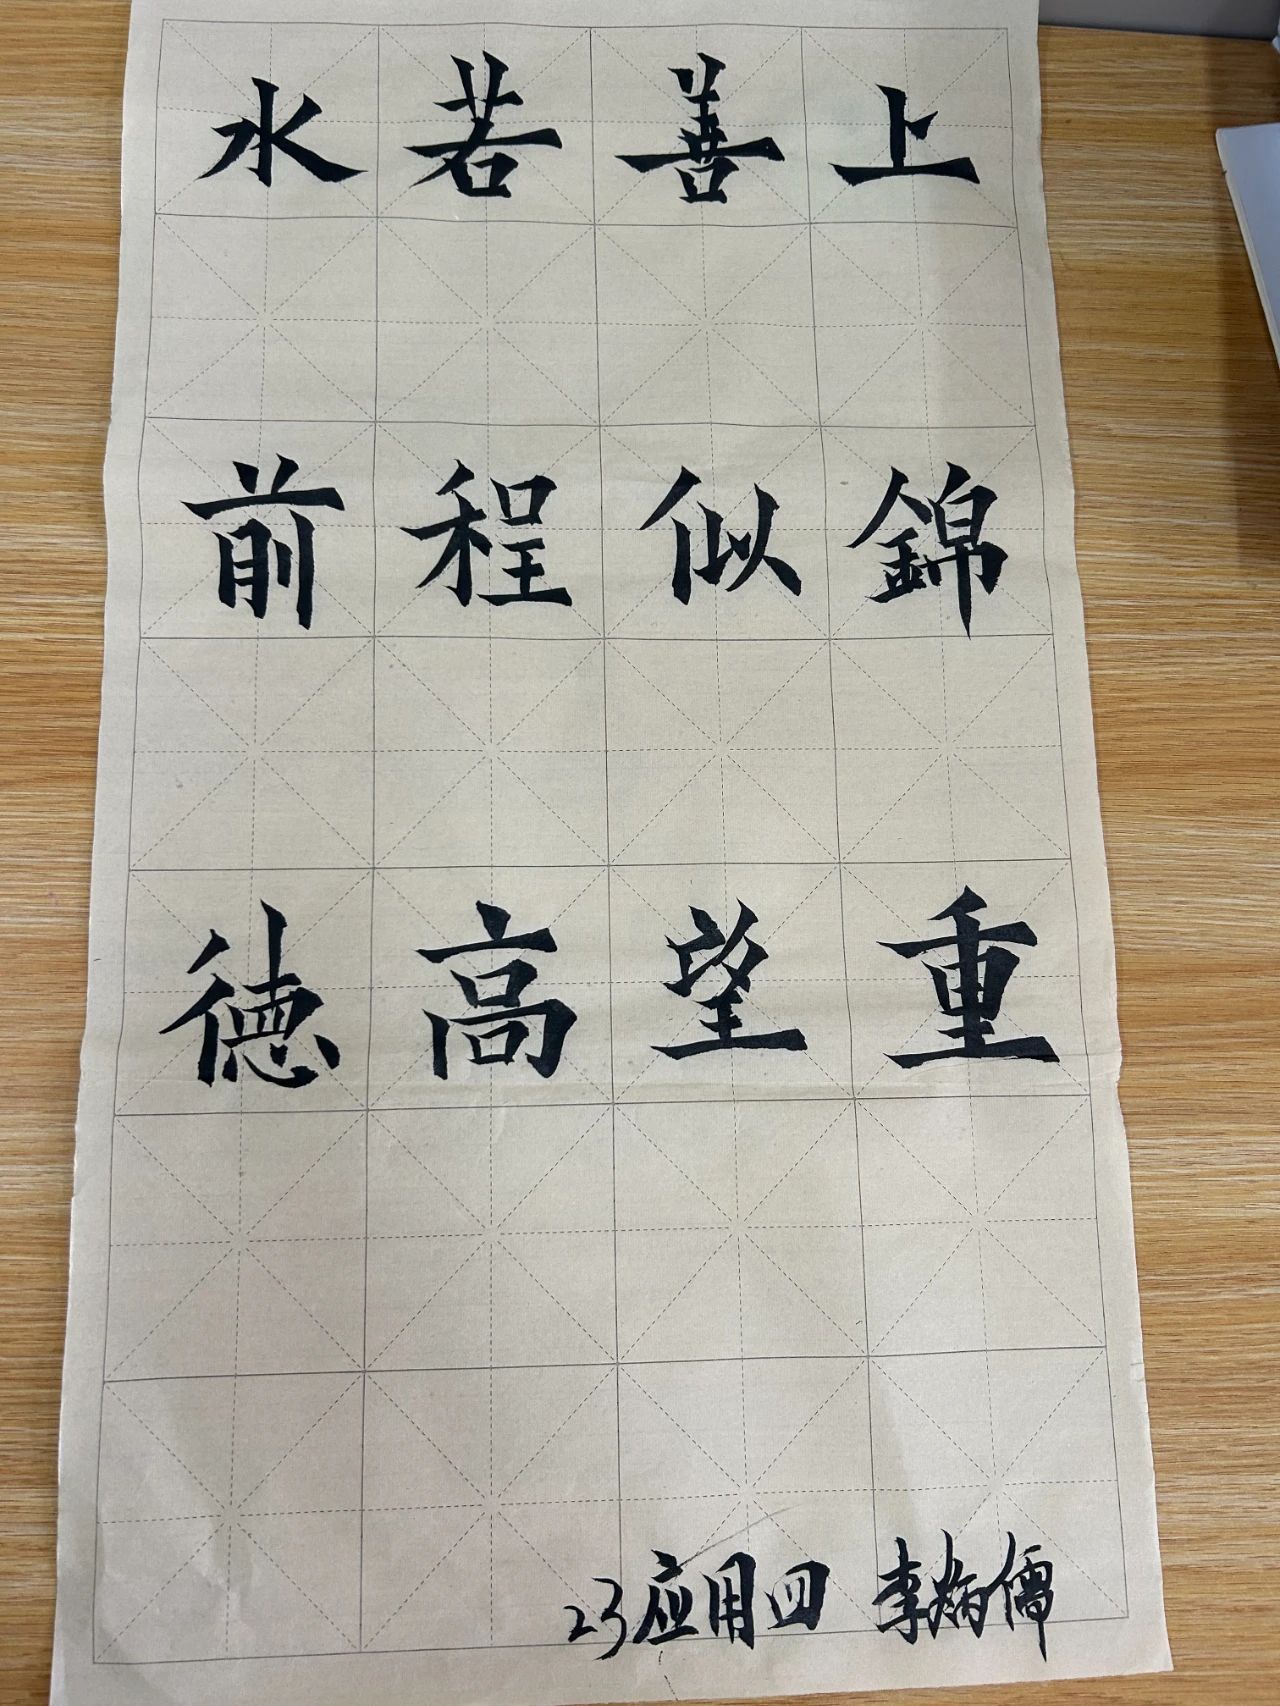 上善若水
前程似錦
德高望重
23应用四 李炳儒